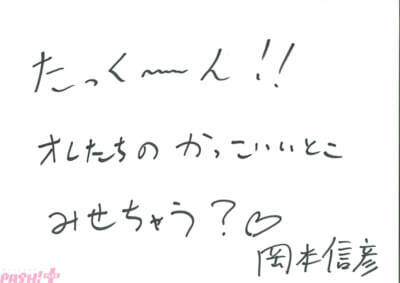 たっく〜ん!!
オレたちの かっこいいとこ
みせちゃう?♡
岡本信彦
PASH!+